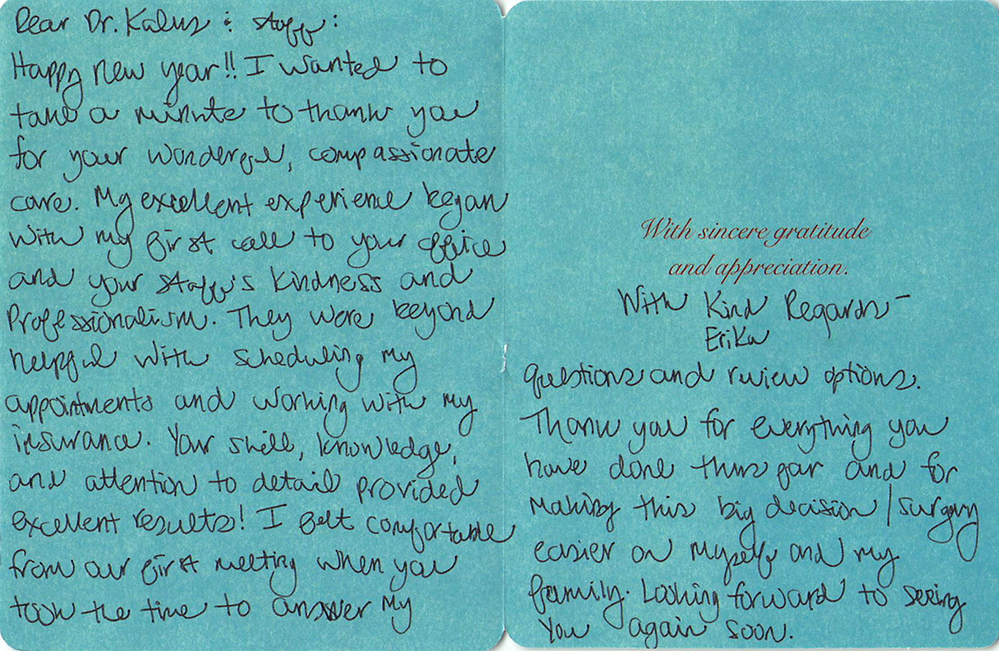 Dear Dr. Kalus & staff:
Happy new year!! I wanted to
take a minute to thank you
for your wonderful, compassionate
care. My excellent experience began
with my first call to your office
and your staff's kindness and
Professionalism. They were beyond
helpful with scheduling my
appointments and working with my
insurance. Your skill, knowledge,
and attention to detail provided
excellent results! I felt comfortable
from our first meeting when you
took the time to answer my
With sincere gratitude
and appreciation.
With Kind Regards-
Erika
questions and review options.
Thank you for everything you
have done thus far and for
making this big decision/surgery
easier on myself and my
family. Looking forward to seeing
you again soon.